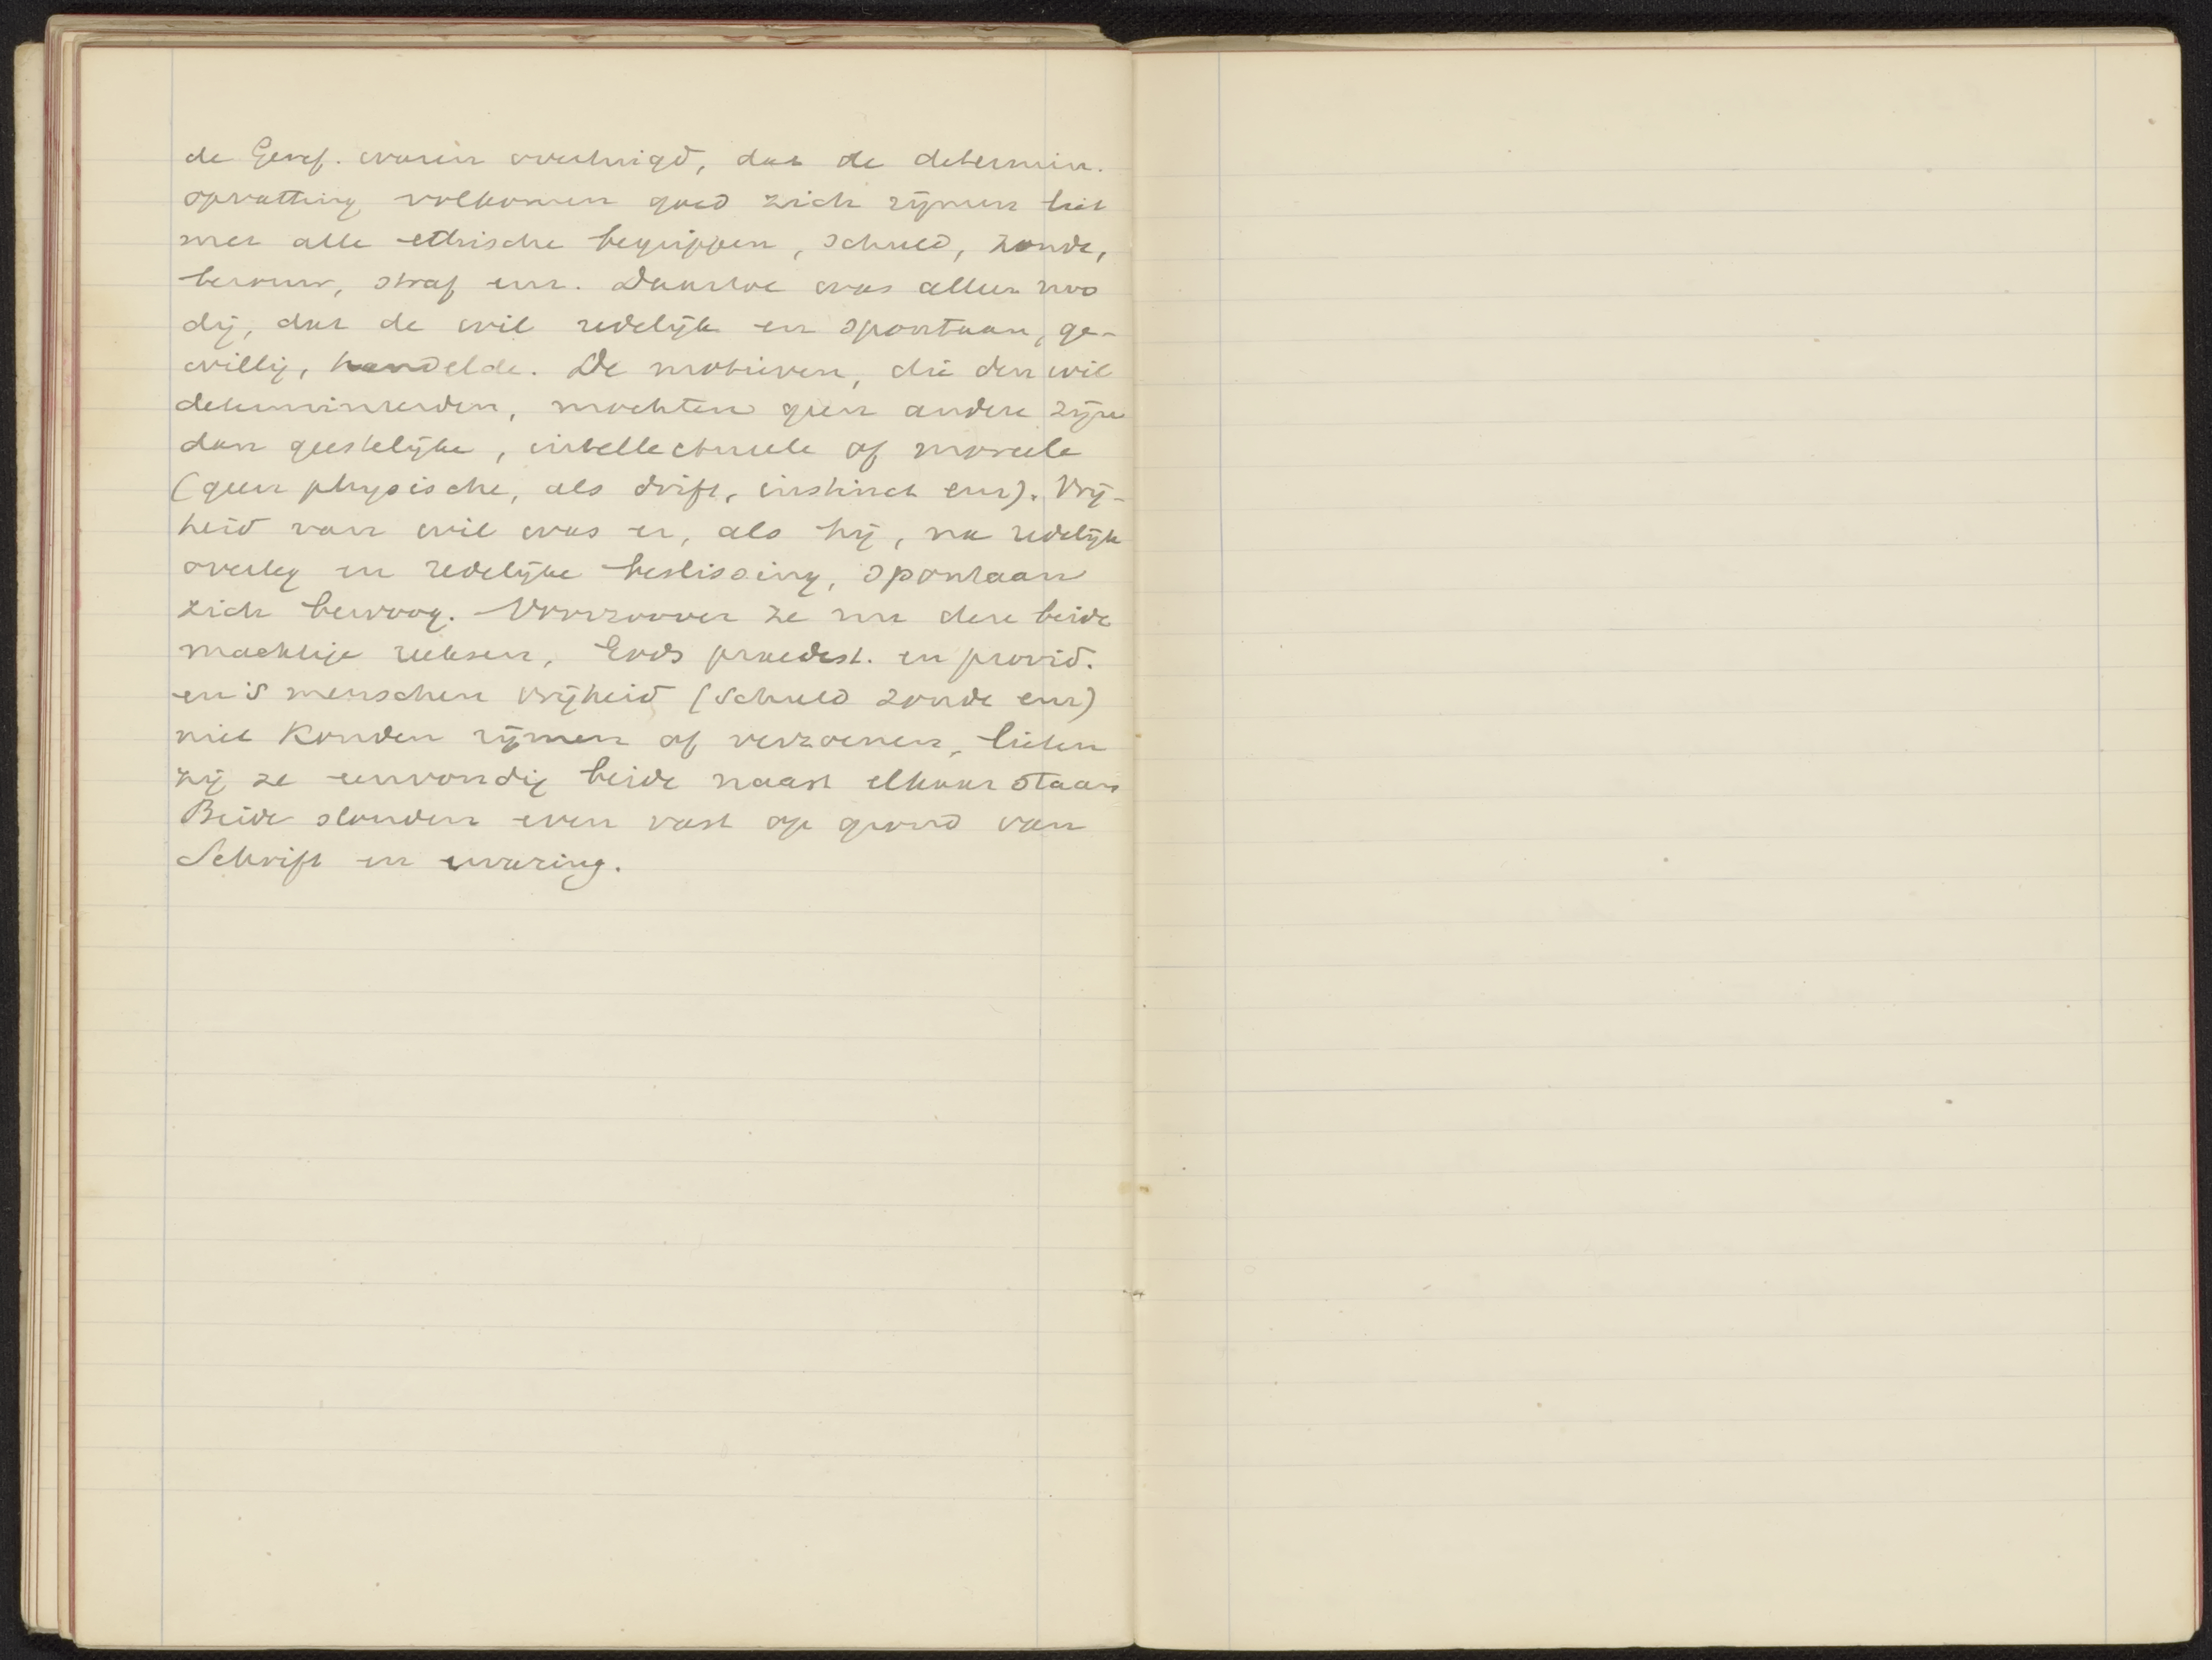 de Geref. waren overtuigd, dat de determin.
opvatting volkomen goed zich rijmen liet
met alle ethische begrippen, schuld, zonde,
berouw, straf enz. Daartoe was alleen noo
dig, dat de wil redelijk en spontaan, ge-
willig, handelde. De motieven, die den wil
determineerden, mochten geen andere zijn
dan geestelijke, intellectueele of moreele
(geen physische, als drift, instinct enz). Vrij-
heid van wil was er, als hij, na redelijk
overleg en redelijke beslissing, spontaan
zich bewoog. Voorzoover ze nu deze beide
machtige reeksen, Gods praedest. en provid.
en 's menschen vrijheid (schuld zonde enz)
niet konden rijmen of verzoenen, lieten
zij ze eenvoudig beide naast elkaar staan
Beide stonden even vast op grond van
Schrift en ervaring.